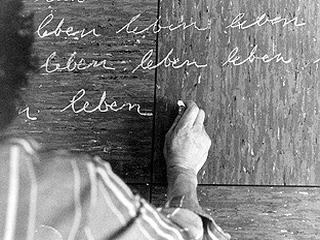 leben leben leben
leben leben leben
leben